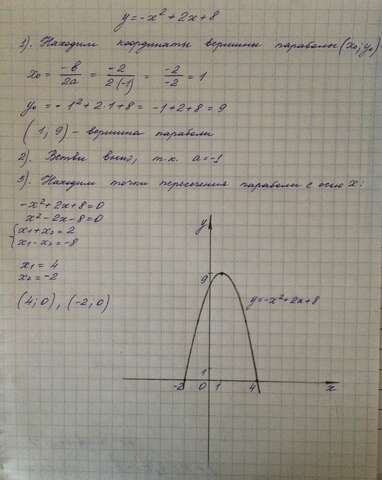 y=-x²+2x+8
1). Находим координаты вершины параболы (x₀;y₀)
x₀ = -b/2a = -2/2(-1) = -2/-2 = 1
y₀ = -1²+2·1+8 = -1+2+8 = 9
(1; 9) - вершина параболы
2). Ветви вниз, т.к. a=-1
3). Находим точки пересечения параболы с осью x:
-x²+2x+8=0
x²-2x-8=0
{x₁+x₂=2
x₁·x₂=-8
x₁=4
x₂=-2
(4;0), (-2;0)
y
9
y=-x²+2x+8
1
-2 0 1 4 x